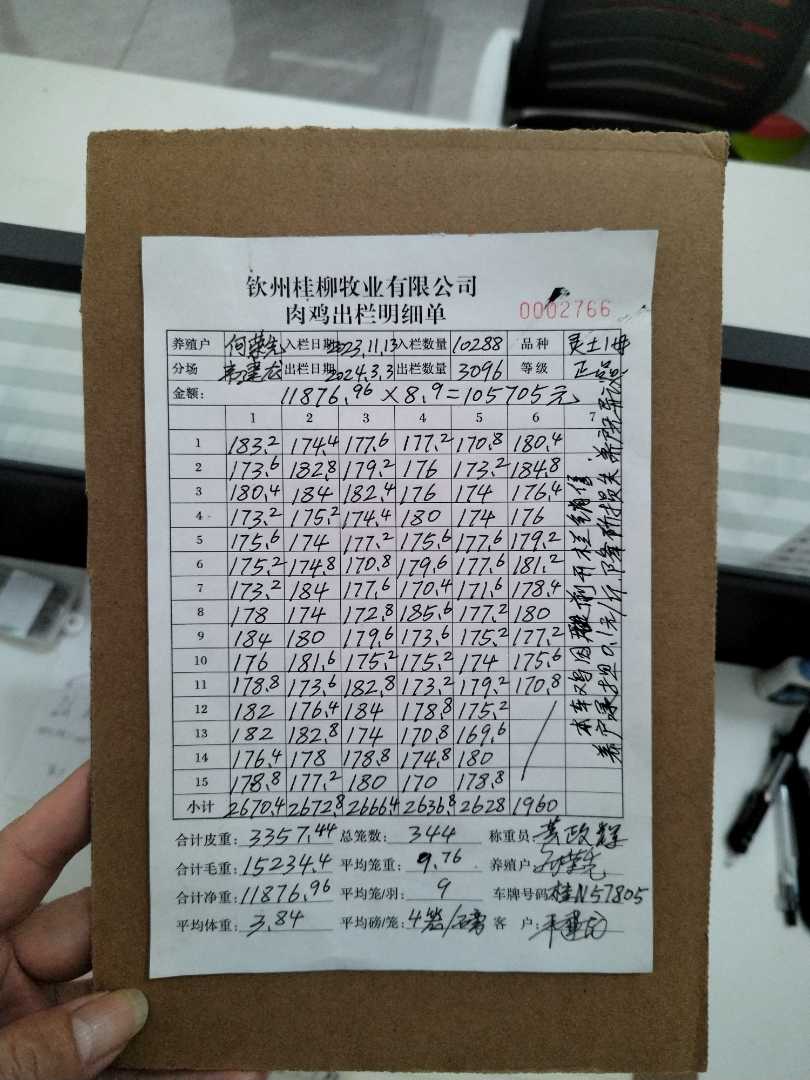 钦州桂柳牧业有限公司
肉鸡出栏明细单
0002766
养殖户 何荣先 入栏日期 2023.11.13 入栏数量 10288 品种 灵土1号
分场 出栏日期 2024.3.3 出栏数量 3096 等级 正品
金额: 11876.96×8.9=105705元
1 2 3 4 5 6 7
1 183.2 174.4 177.6 177.2 170.8 180.4
2 173.6 182.8 179.2 176 173.2 184.8
3 180.4 184 182.4 176 174 176.4
4 173.2 175.2 174.4 180 174 176
5 175.6 174 177.2 175.6 177.6 179.2
6 175.2 174.8 170.8 179.6 177.6 181.2
7 173.2 184 177.6 170.4 171.6 178.4
8 178 174 172.8 185.6 177.2 180
9 184 180 179.6 173.6 175.2 177.2
10 176 181.6 175.2 175.2 174 175.6
11 178.8 173.6 182.8 173.2 179.2 170.8
12 182 176.4 184 178.8 175.2
13 182 182.8 174 170.8 169.6
14 176.4 178 178.8 174.8 180
15 178.8 177.2 180 170 178.8
小计 2670.4 2672.8 2666.4 2636.8 2628 1960
本车鸡因提前开栏销售
降价损失
养户承担0.1元/斤
合计皮重: 3357.44 总笼数: 344 称重员: 黄政辉
合计毛重: 15234.4 平均笼重: 9.76 养殖户: 何荣先
合计净重: 11876.96 平均笼/羽: 9 车牌号码: 桂N57805
平均体重: 3.84 平均磅/笼: 4笼/磅 客 户: